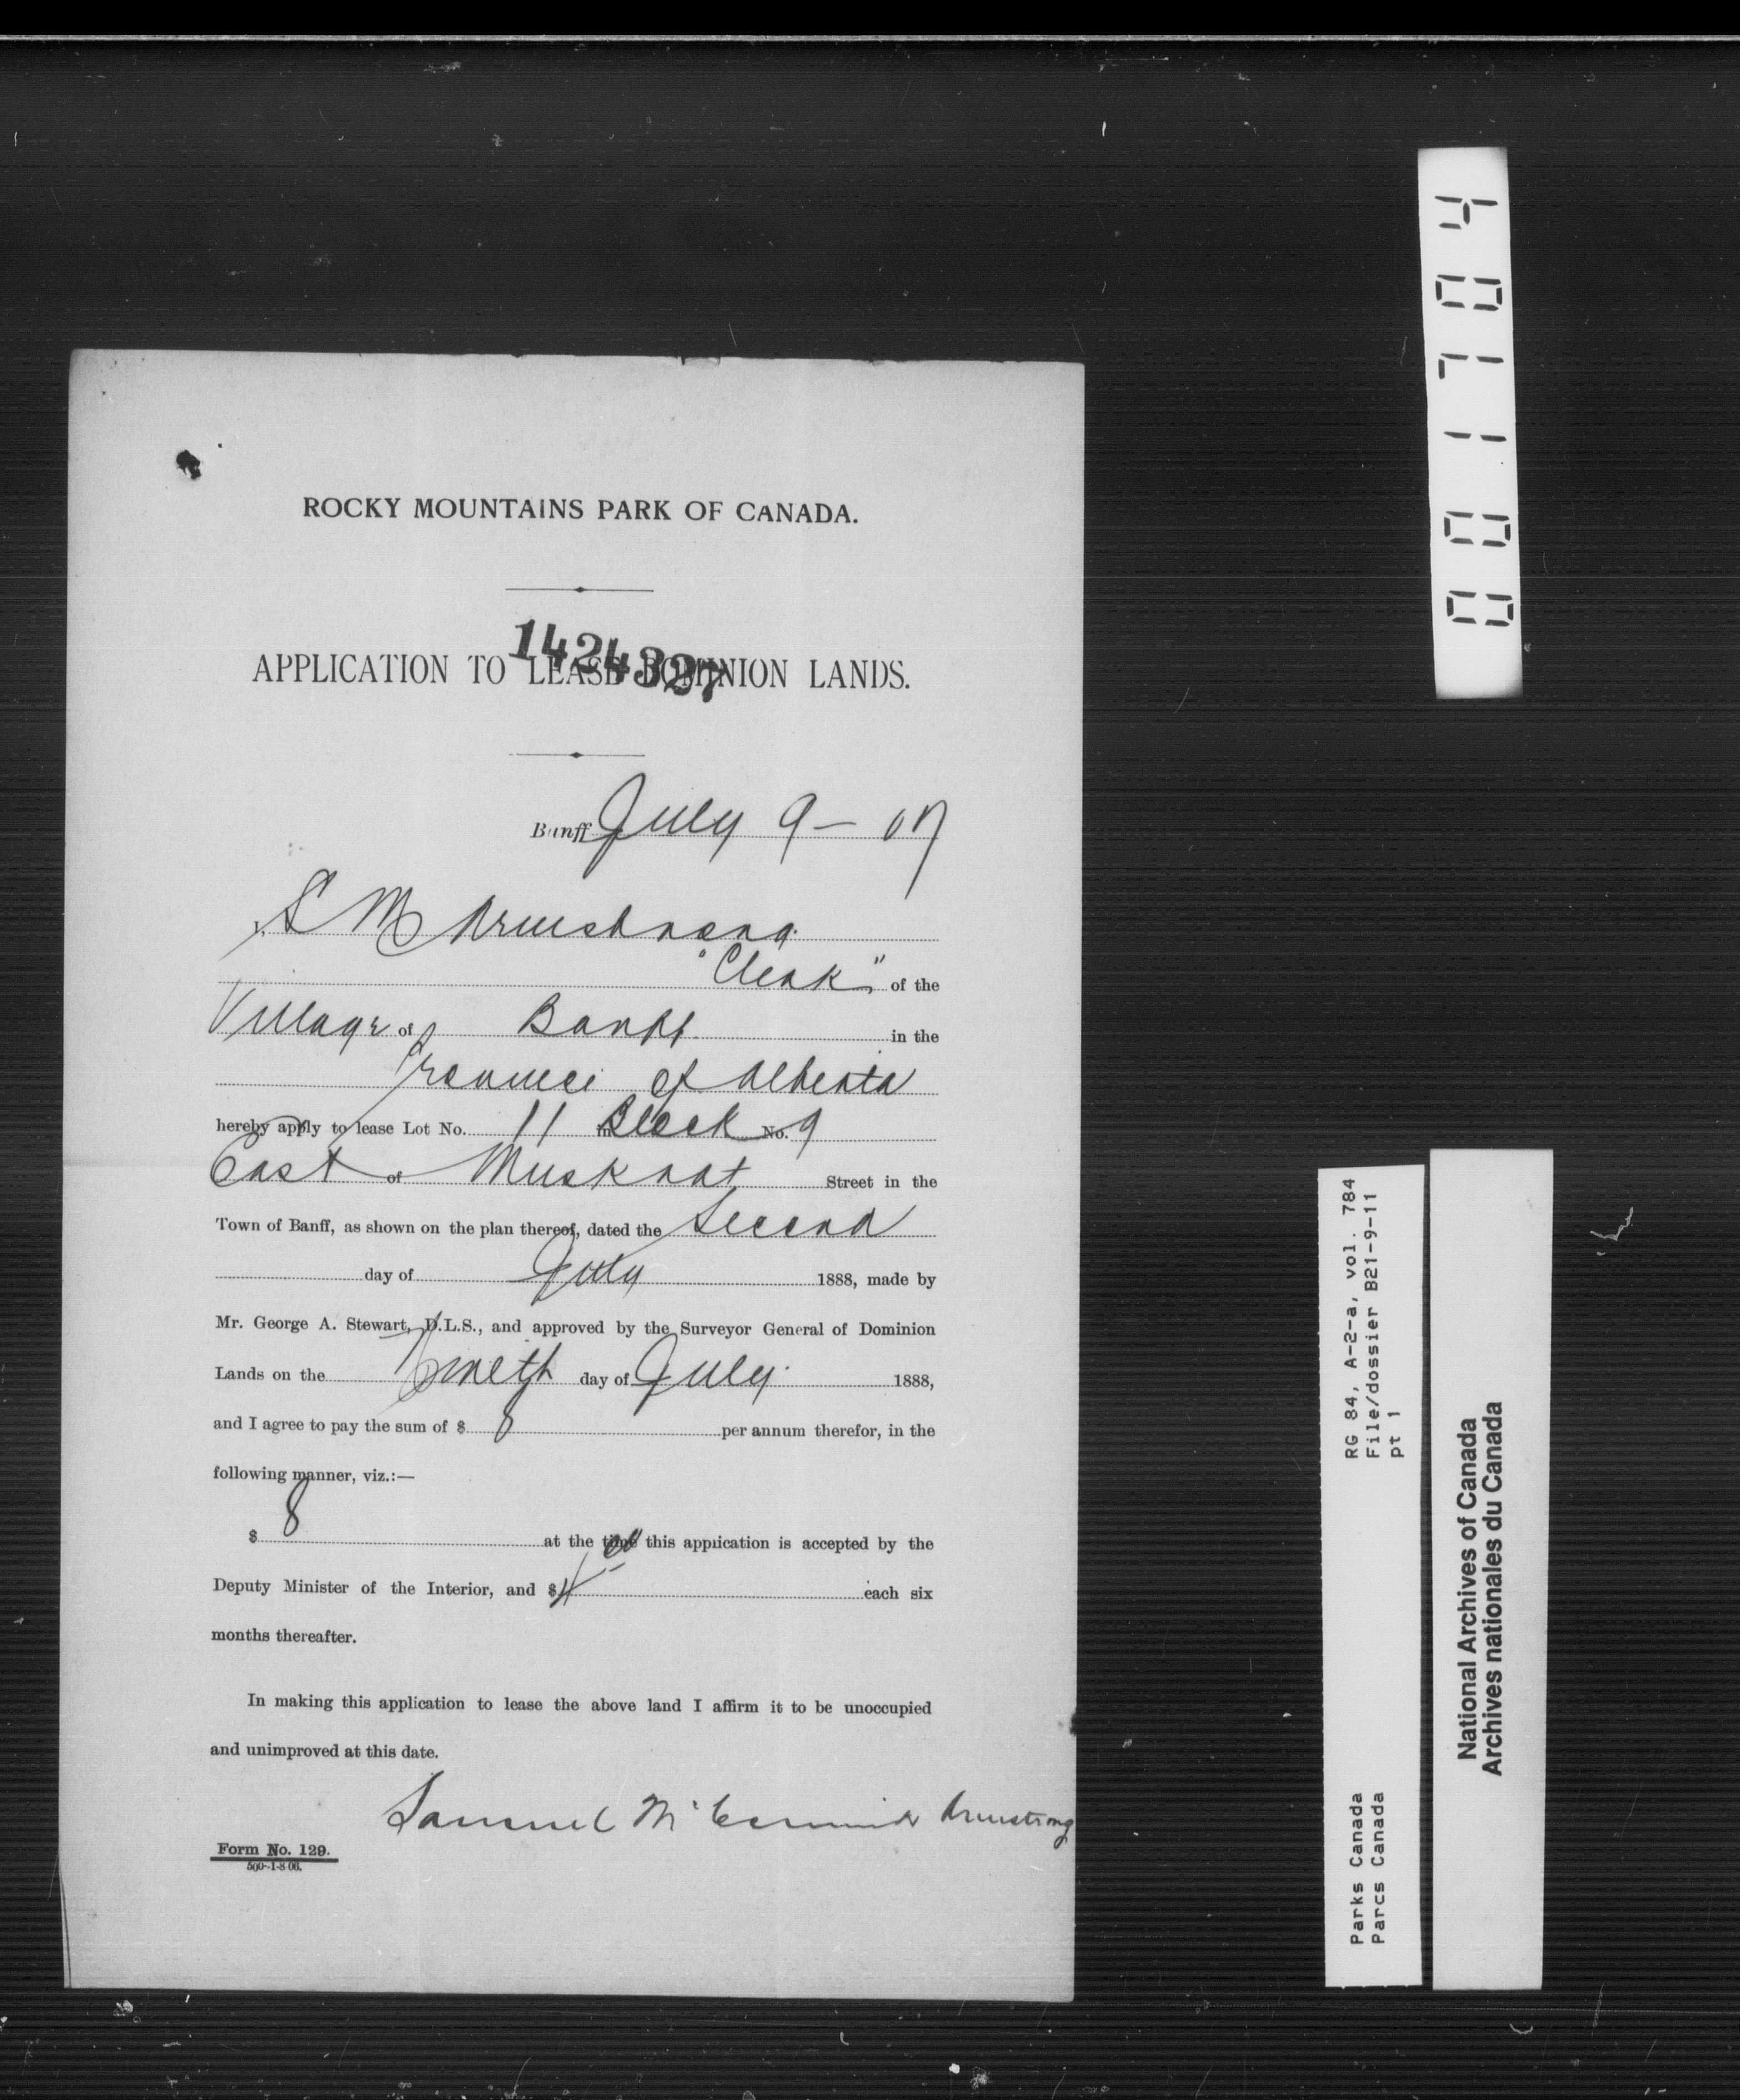 ROCKY MOUNTAINS PARK OF CANADA.
1424327
APPLICATION TO LEASE DOMINION LANDS.
Banff July 9 - 07
I, S M Armstrong
"Clerk" of the
Village of Banff in the
Province of Alberta
hereby apply to lease Lot No. 11 in Block No. 9
East of Muskrat Street in the
Town of Banff, as shown on the plan thereof, dated the Second
day of July 1888, made by
Mr. George A. Stewart, D.L.S., and approved by the Surveyor General of Dominion
Lands on the day of July 1888,
and I agree to pay the sum of $ 8 per annum therefor, in the
following manner, viz.:—
$ 8 at the time this application is accepted by the
Deputy Minister of the Interior, and $ 4 each six
months thereafter.
In making this application to lease the above land I affirm it to be unoccupied
and unimproved at this date.
Samuel Armstrong
Form No. 129.
500-1-8 06.
001704
RG 84, A-2-a, vol. 784
File/dossier B21-9-11
pt 1
Parks Canada
Parcs Canada
National Archives of Canada
Archives nationales du Canada